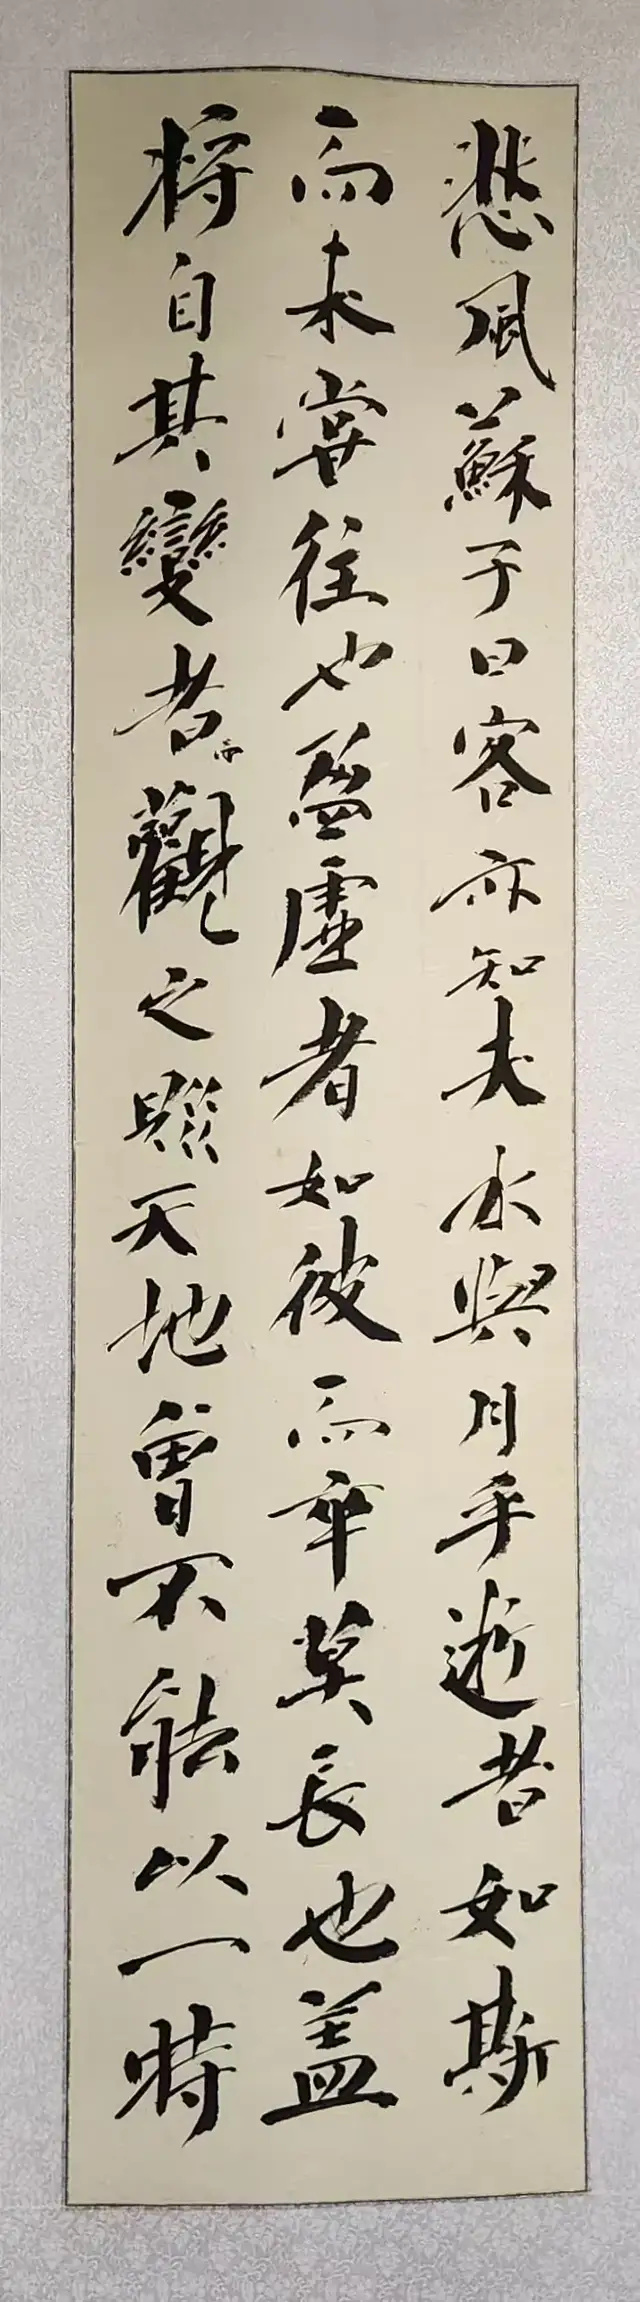 悲風蘇子曰客亦知夫水與月乎逝者如斯
而未嘗往也盈虛者如彼而卒莫長也盖
將自其變者而觀之則天地曾不能以一時